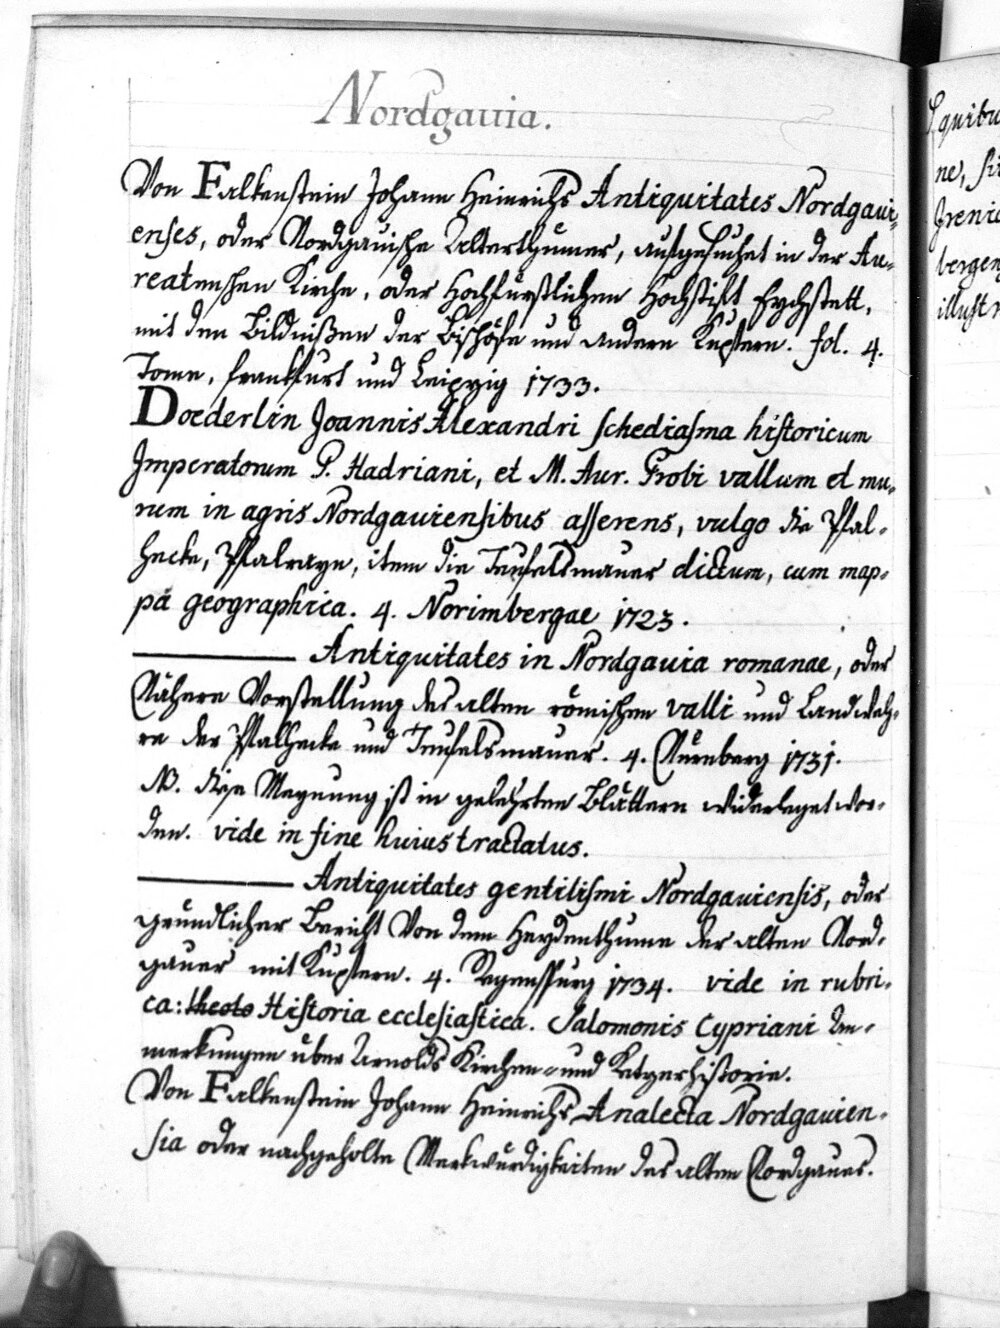 Nordgauia.
Von Falkenstein Johann Heinrichs Antiquitates Nordgaui-
enses, oder Nordgauische Alterthümer, aufgesuchet in der Au-
reatenschen Kirche, oder Hochfürstlichen Hochstifft Eychstett,
mit den Bildnißen der Bischöfe und andern Kupfern. fol. 4.
Tome, Franckfurt und Leipzig 1733.
Doederlin Joannis Alexandri schediasma historicum
Imperatorum P. Hadriani, et M. Aur. Probi vallum et mu-
rum in agris Nordgauiensibus asserens, vulgo die Pfal-
hecke, Pfalraye, item die Teufelsmauer dictum, cum map-
pa geographica. 4. Norimbergae 1723.
Antiquitates in Nordgauia romanae, oder
Nähere Vorstellung des alten römischen valli und Landweh-
re der Pfalhecke und Teufelsmauer. 4. Nürnberg 1731.
NB. diese Meynung ist in gelehrten Blättern widerleget wor-
den. vide in fine huius tractatus.
Antiquitates gentilismi Nordgauiensis, oder
gründlicher Bericht Von dem Heydenthume der alten Nord-
gauer mit Kupfern. 4. Regenspurg 1734. vide in rubri-
ca: theolo Historia ecclesiastica. Salomonis Cypriani An-
merkungen über Arnolds Kirchen- und Ketzerhistorie.
Von Falkenstein Johann Heinrichs Analecta Nordgauien-
sia oder nachgeholte Merkwürdigkeiten des alten Nordgaues.